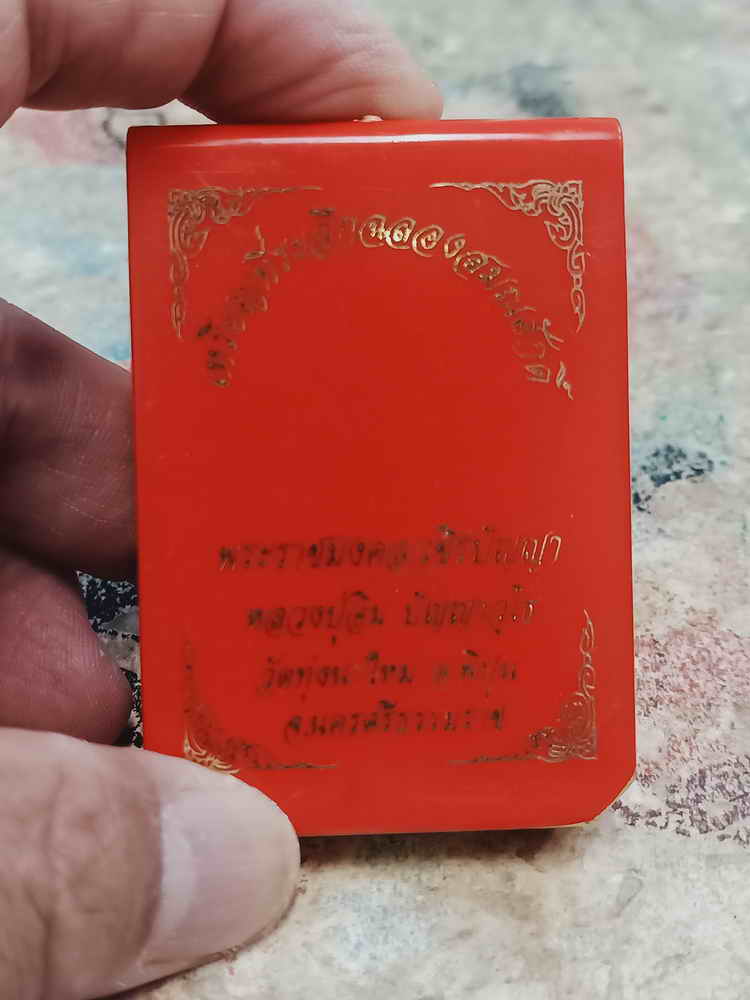 เหรียญที่ระลึกฉลองสมณศักดิ์
พระราชมงคลวชิรปัญญา
หลวงปู่สิน ปัญญาวุโธ
วัดทุ่งนาใหม่ อ.พิปูน
จ.นครศรีธรรมราช